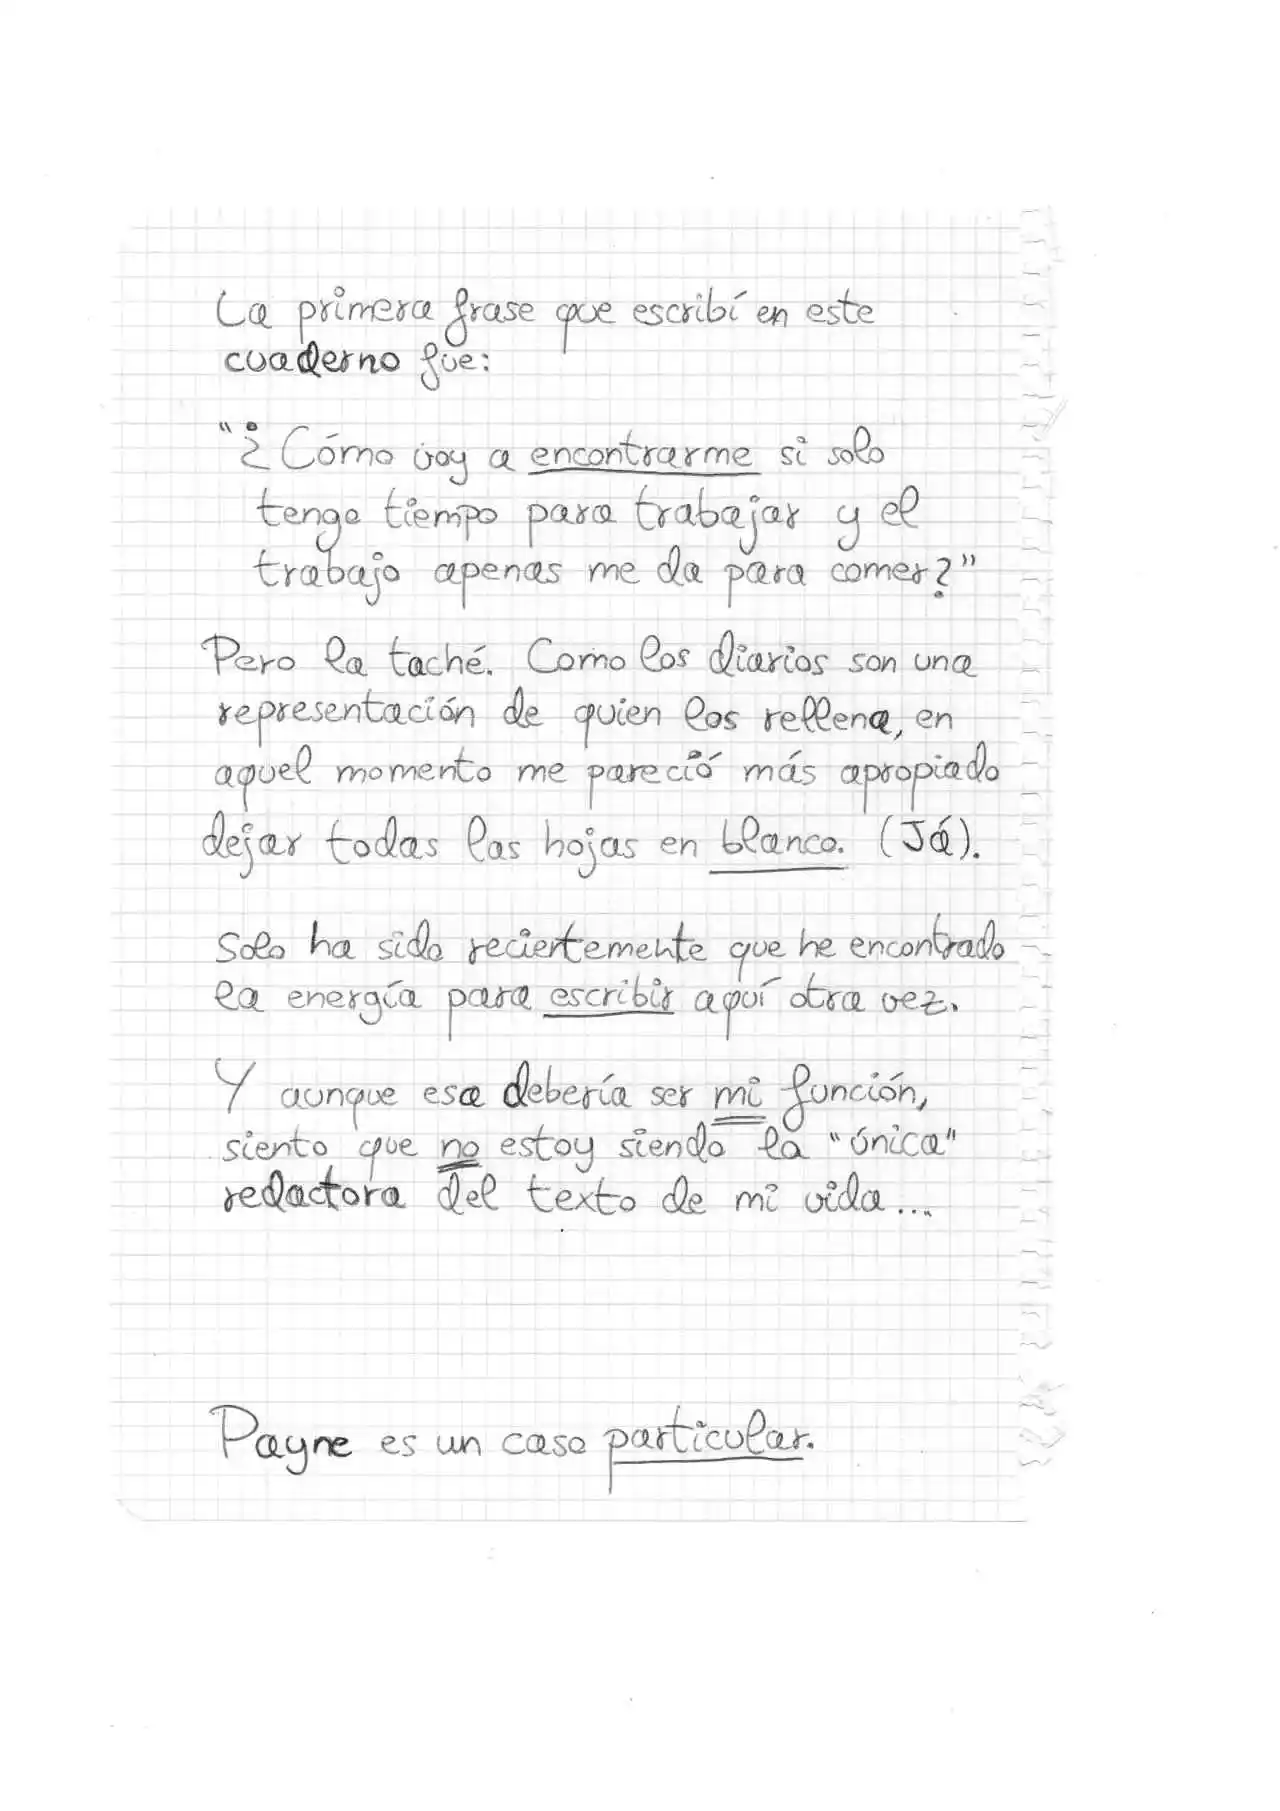 La primera frase que escribí en este
cuaderno fue:
"¿Cómo voy a encontrarme si solo
tengo tiempo para trabajar y el
trabajo apenas me da para comer?"
Pero la taché. Como los diarios son una
representación de quien los rellena, en
aquel momento me pareció más apropiado
dejar todas las hojas en blanco. (Já).
Solo ha sido recientemente que he encontrado
la energía para escribir aquí otra vez.
Y aunque esa debería ser mi función,
siento que no estoy siendo la "única"
redactora del texto de mi vida...
Payne es un caso particular.